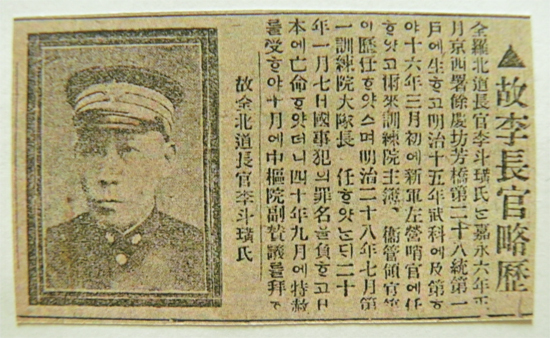 ▲故李長官略歷
全羅北道長官李斗璜氏と嘉永六年正
月京西署餘慶坊芳橋第二十八統第一
戶에生ᄒᆞ고明治十五年武科에及第ᄒᆞ
야十六年三月初에新軍左營哨官에任
ᄒᆞ얏고爾來訓練院主簿、衞管領官等
이歷任ᄒᆞ얏스며明治二十八年七月第
一訓練院大隊長 任ᄒᆞ얏ᄂᆞᄃᆡ二十
年一月七日國事犯의罪名을負ᄒᆞ고日
本에亡命ᄒᆞ얏더니四十年九月에特赦
를受ᄒᆞ야十月에中樞院副贊議를拜ᄒᆞ
故全北道長官李斗璜氏